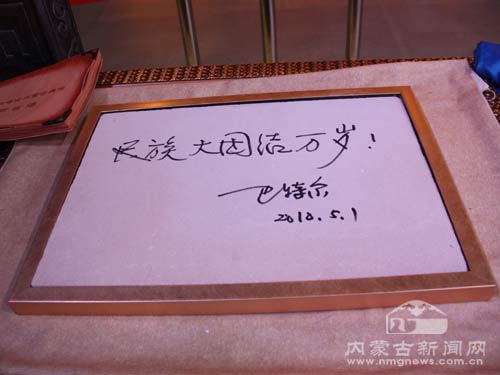 民族大团结万岁!
巴特尔
2010.5.1
内蒙古新闻网
www.nmgnews.com.cn